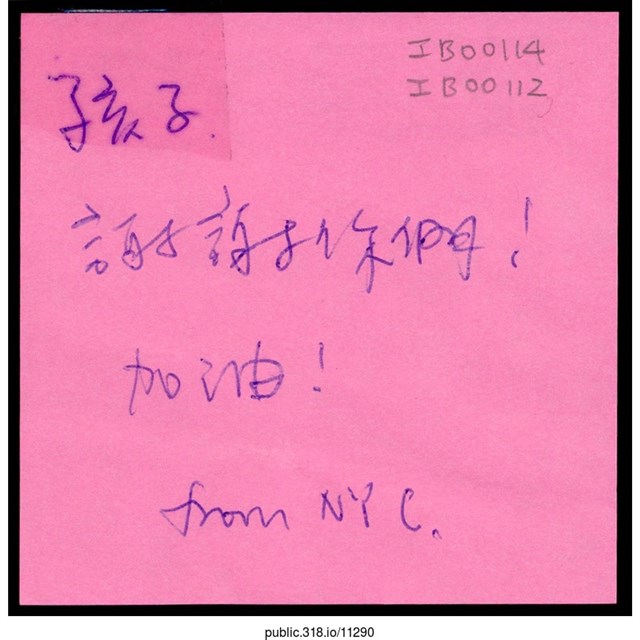 IB00114
IB00112
孩子.
謝謝你們!
加油!
from NYC.
public.318.io/11290